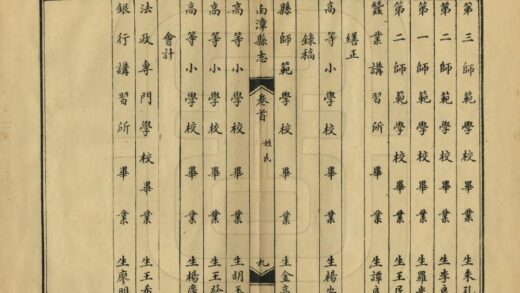 第三師範學校畢業生朱孔
第二師範學校畢業生李
第一師範學校畢業生羅
第二師範學校畢業生王
蠶業講習所畢業生譚
繕正
高等小學校畢業生楊
錄稿
縣師範學校畢業生金
南漳縣志 卷首 姓氏 九
高等小學校畢業生胡
高等小學校畢業生王
高等小學校畢業生楊
會計
法政專門學校畢業生王
銀行講習所畢業生廖明